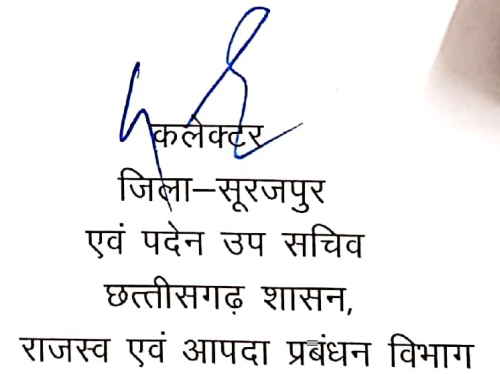 कलेक्टर
जिला–सूरजपुर
एवं पदेन उप सचिव
छत्तीसगढ़ शासन,
राजस्व एवं आपदा प्रबंधन विभाग